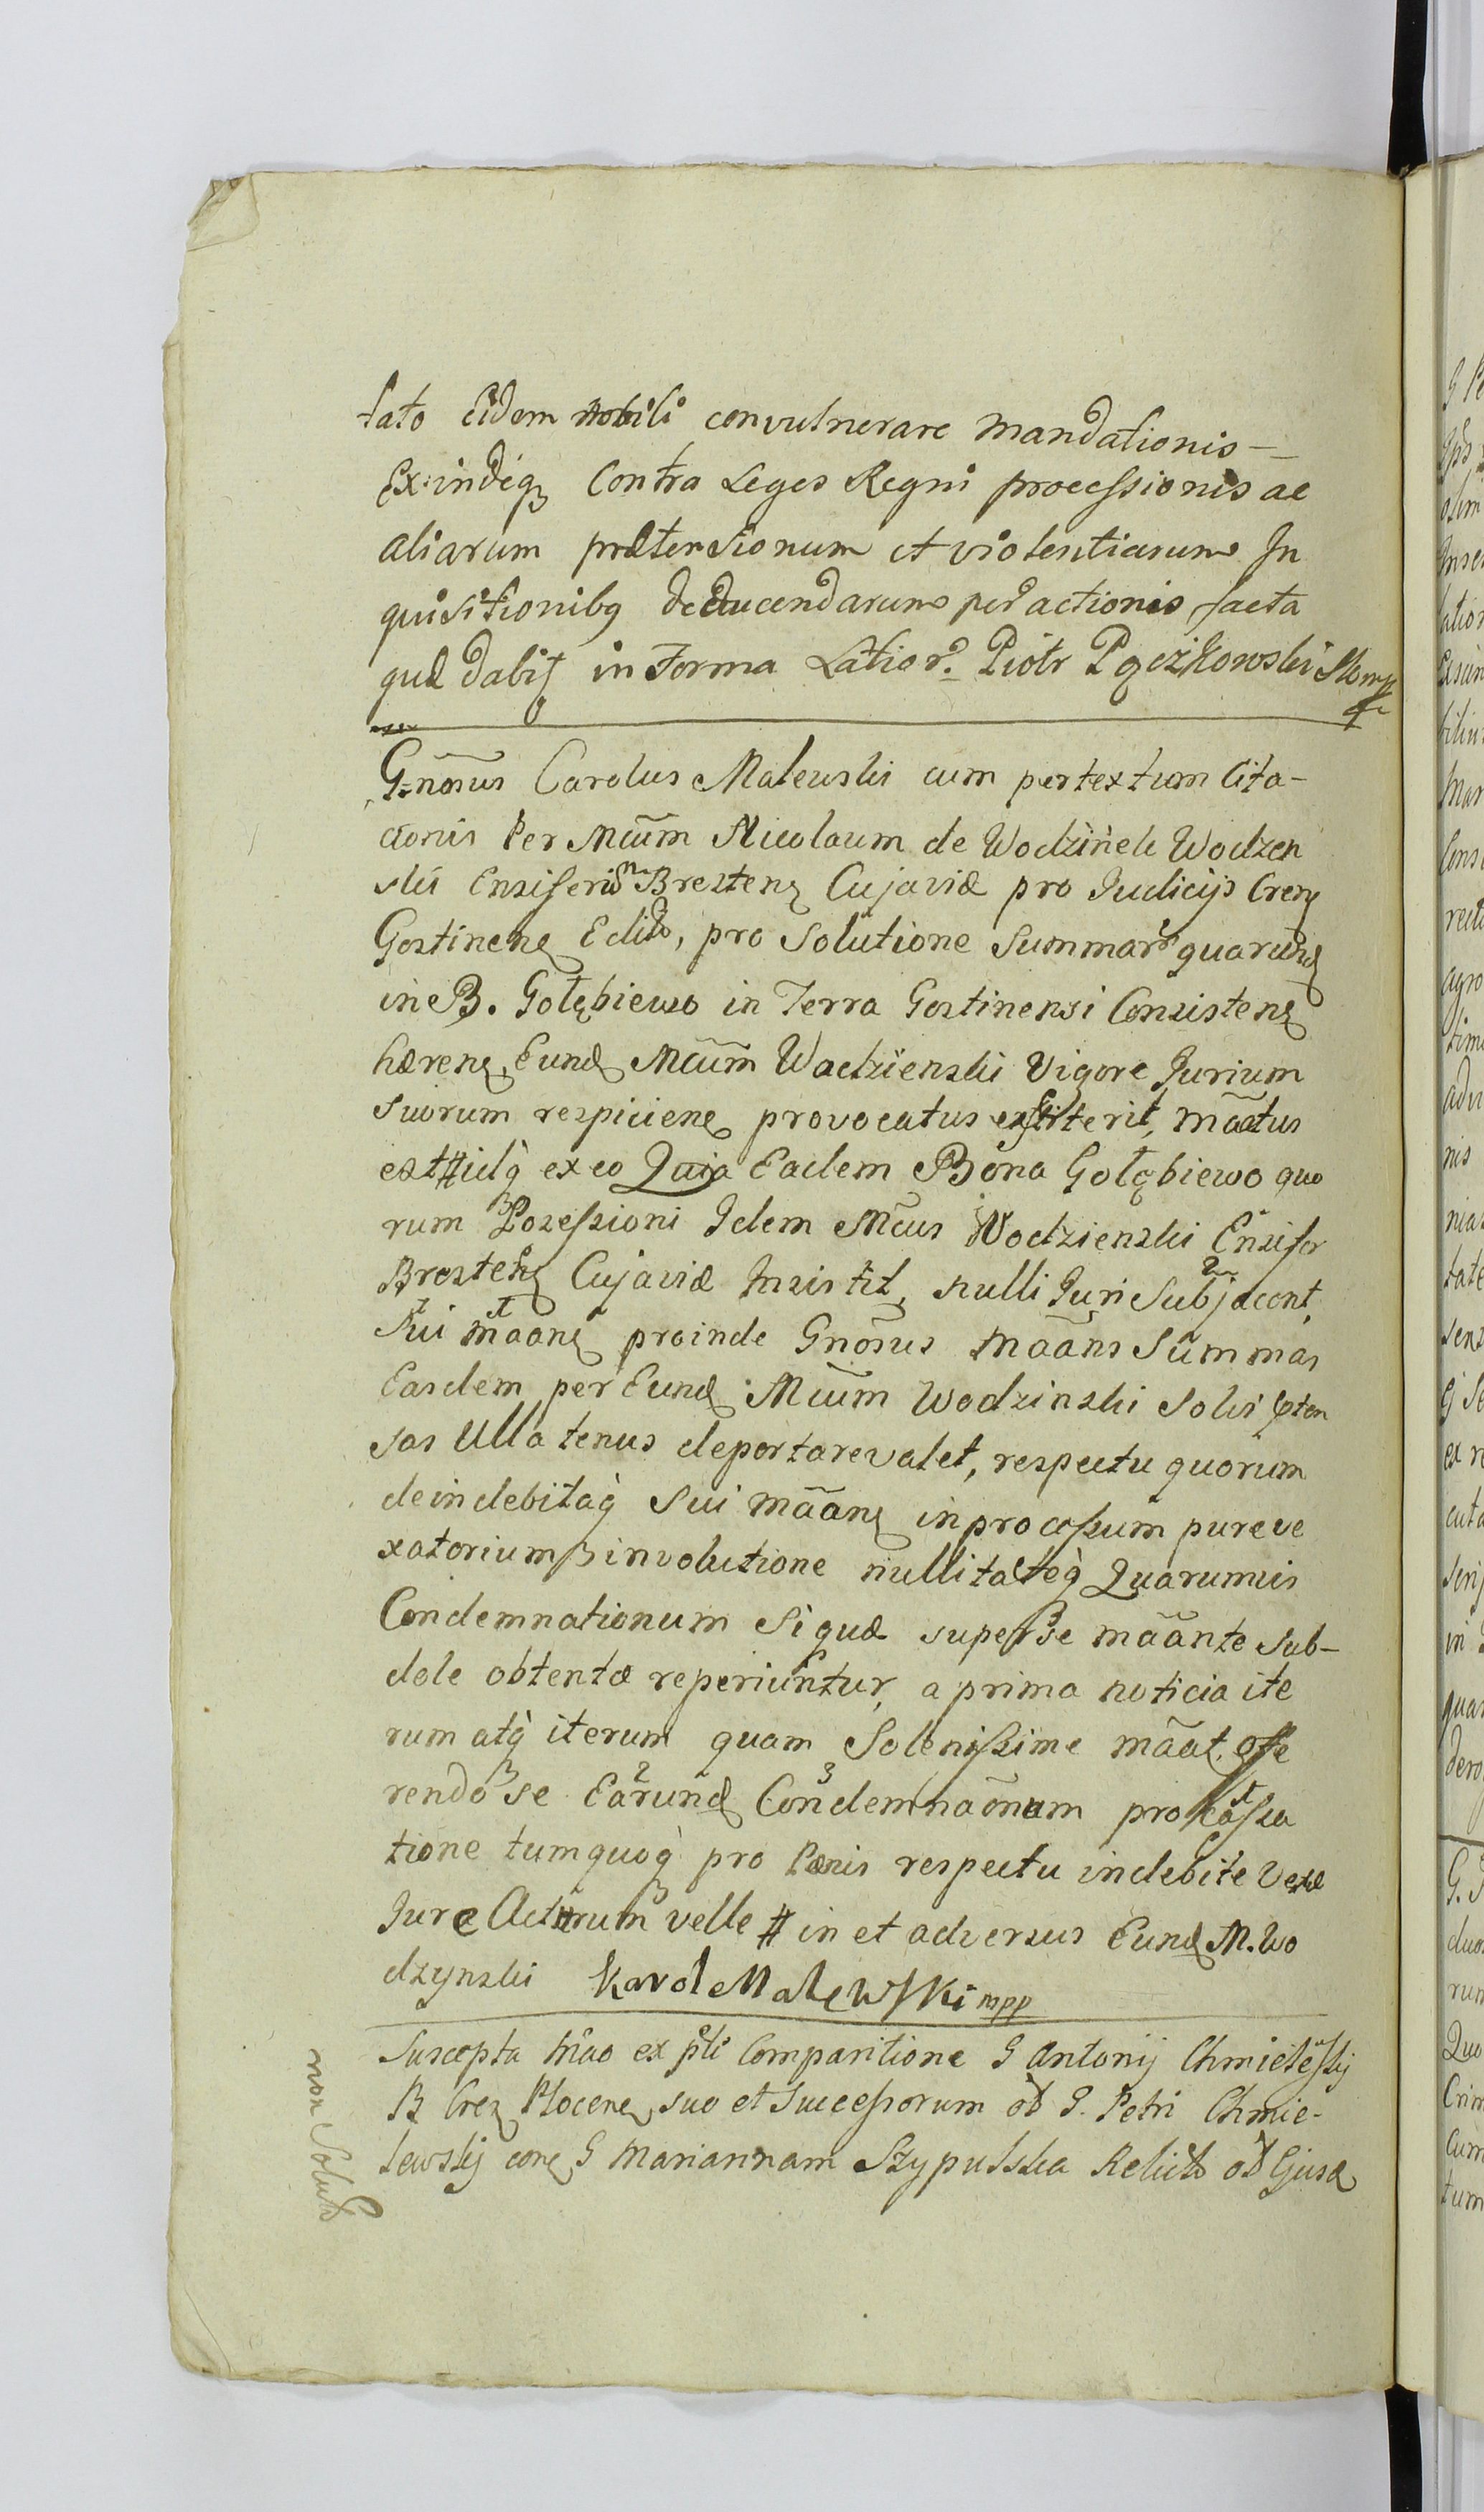 tato Eidem Nobili convulnerare Mandationis —
Ex:indeq₃ Contra Leges Regni processionis ac
aliarum prætensionum et violentiarum In
quisitionibq deducendarum per actionis facta
quæ dabit in Forma Latiorĩ. Piotr Pączkowski
G=nõsus Carolus Malewski cum pertextum Cita-
cionis Per Mcũm Nicolaum de Wodzinek Wodzen
ski Ensiferũ Brestenȩ Cujaviæ pro Judicijs Crenȩ
Gostinenȩ Edit, pro Solutione Summar quarundȩ
in B. Gołębiewo in Terra Gostinensi Consistenȩ
hærenȩ, Eundȩ Mcũm Wodzienski Vigore Jurium
suorum respicienȩ provocatus extiterit, mãatus
est # idq̀ ex eo Quia Eadem Bona Gołębiewo quo
rum Possessioni Idem Mc̃us Wodzienski Ensifer
Brestenȩ Cujaviæ Insistit, nulli Juri Subjacent,
Sui mãanȩ proinde Gnõsus Mãans Summas
Easdem per Eundȩ Mcũm Wodzinski Solvi
sas Ulla tenus deportare valet, respectu quorum
de indebitaq̀ Sui mãanȩ in processum pure ve
xatorium involutione nullitateq̀ Quarumvis
Condemnationum Si quæ super se mãante Sub-
dole obtentæ reperiuntur, a prima noticia ite
rum atq̀ iterum quam Solenissime mãat, offe
rendo se Earundȩ Condemnãonum pro cassa
tione tum quoq̀ pro Pænis respectu indebite Vexæ
Jure Acturum velle # in et adversus Eundȩ M. Wo
dzynski Karol Malewski mpp
Suscepta hiac ex pti Comparitione G Antonij Chmielewskij
B Crenȩ Plocenȩ, suo et Successorum ol G. Petri Chmie-
lewskij conȩ G Mariannam Szypulska Relictã ol Ejusdȩ
non Solut